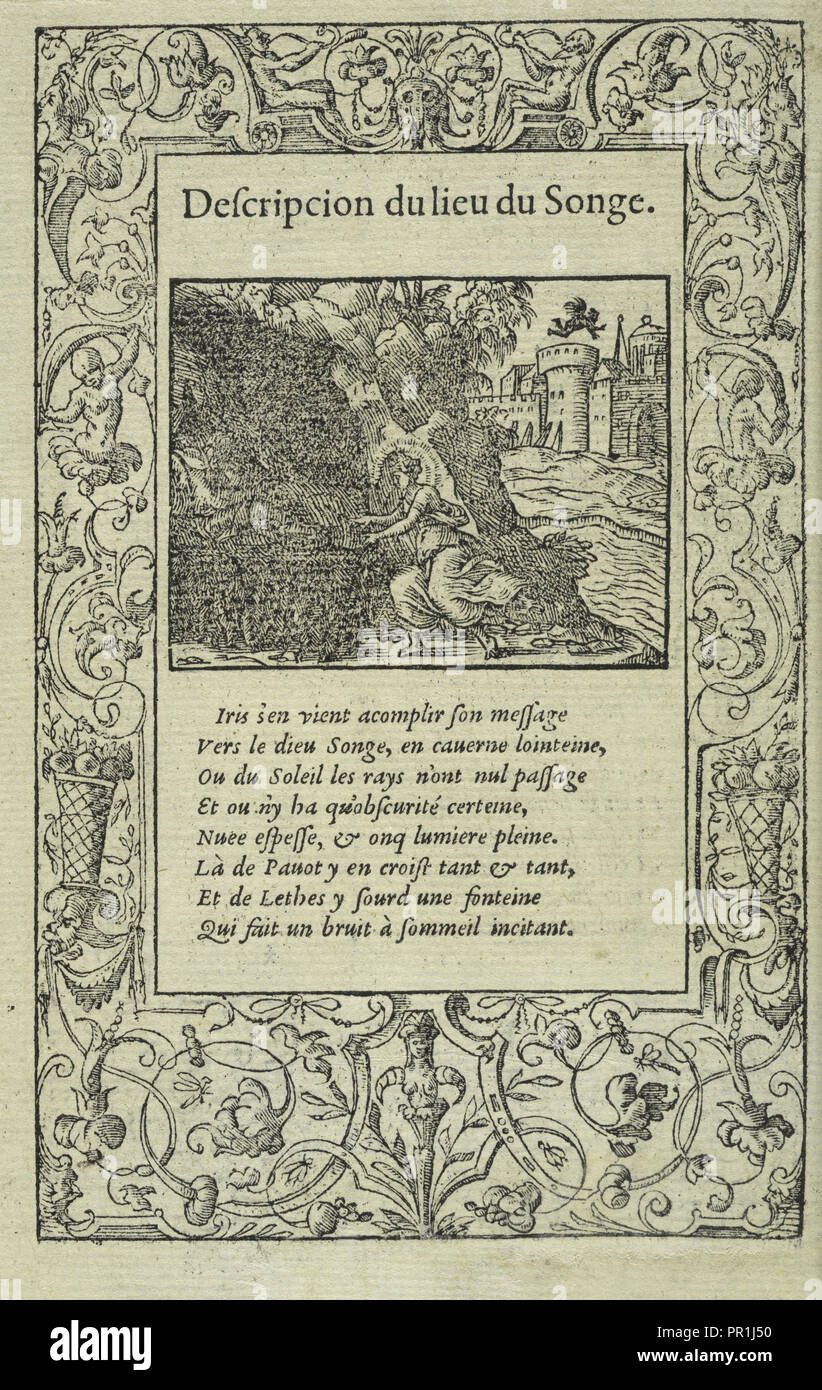 Deſcripcion du lieu du Songe.
Iris s'en vient acomplir ſon meſſage
Vers le dieu Songe, en cauerne lointeine,
Ou du Soleil les rays n'ont nul paſſage
Et ou n'y ha qu'obſcurité certeine,
Nuee eſpeſſe, & onq lumiere pleine.
Là de Pauot y en croiſt tant & tant,
Et de Lethes y ſourd une fonteine
Qui fait un bruit à ſommeil incitant.
alamy
alamy
Image ID: PR1J50
www.alamy.com